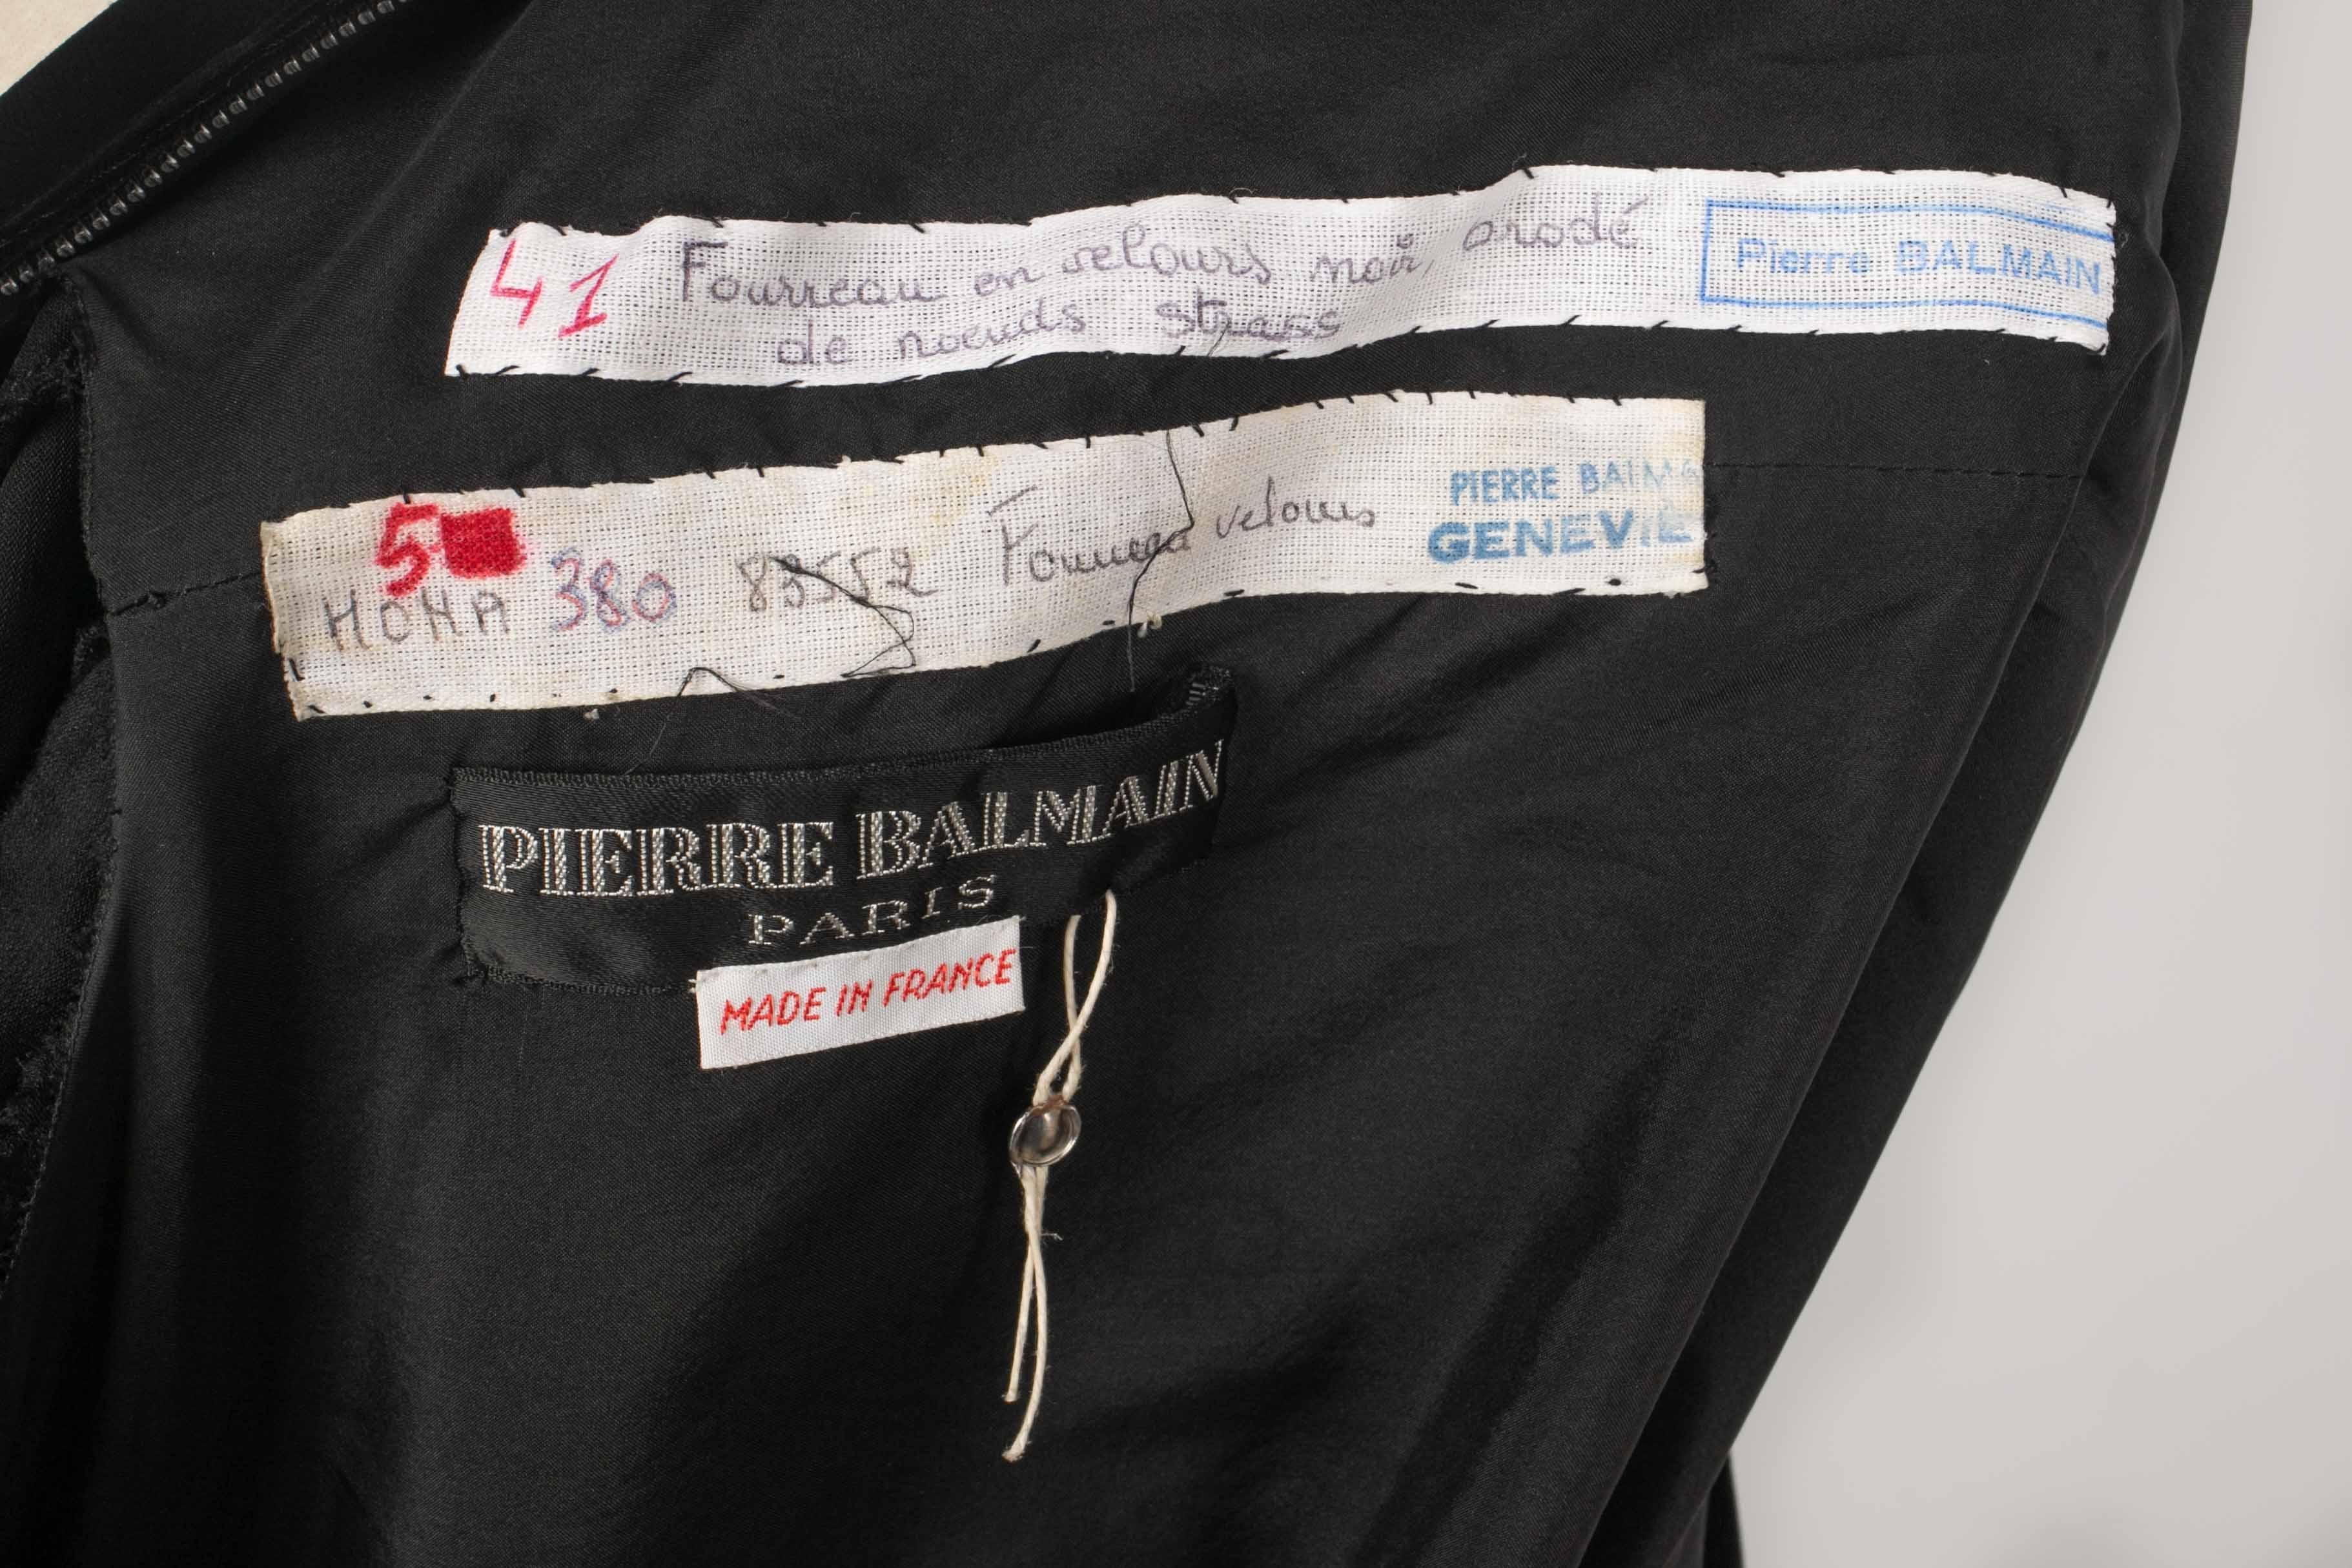 41 Fourreau en velours noir, brodé Pierre BALMAIN
de noeuds strass
5
PIERRE BALMA
380 83552 Fourreau velours GENEVIE
PIERRE BALMAIN
PARIS
MADE IN FRANCE